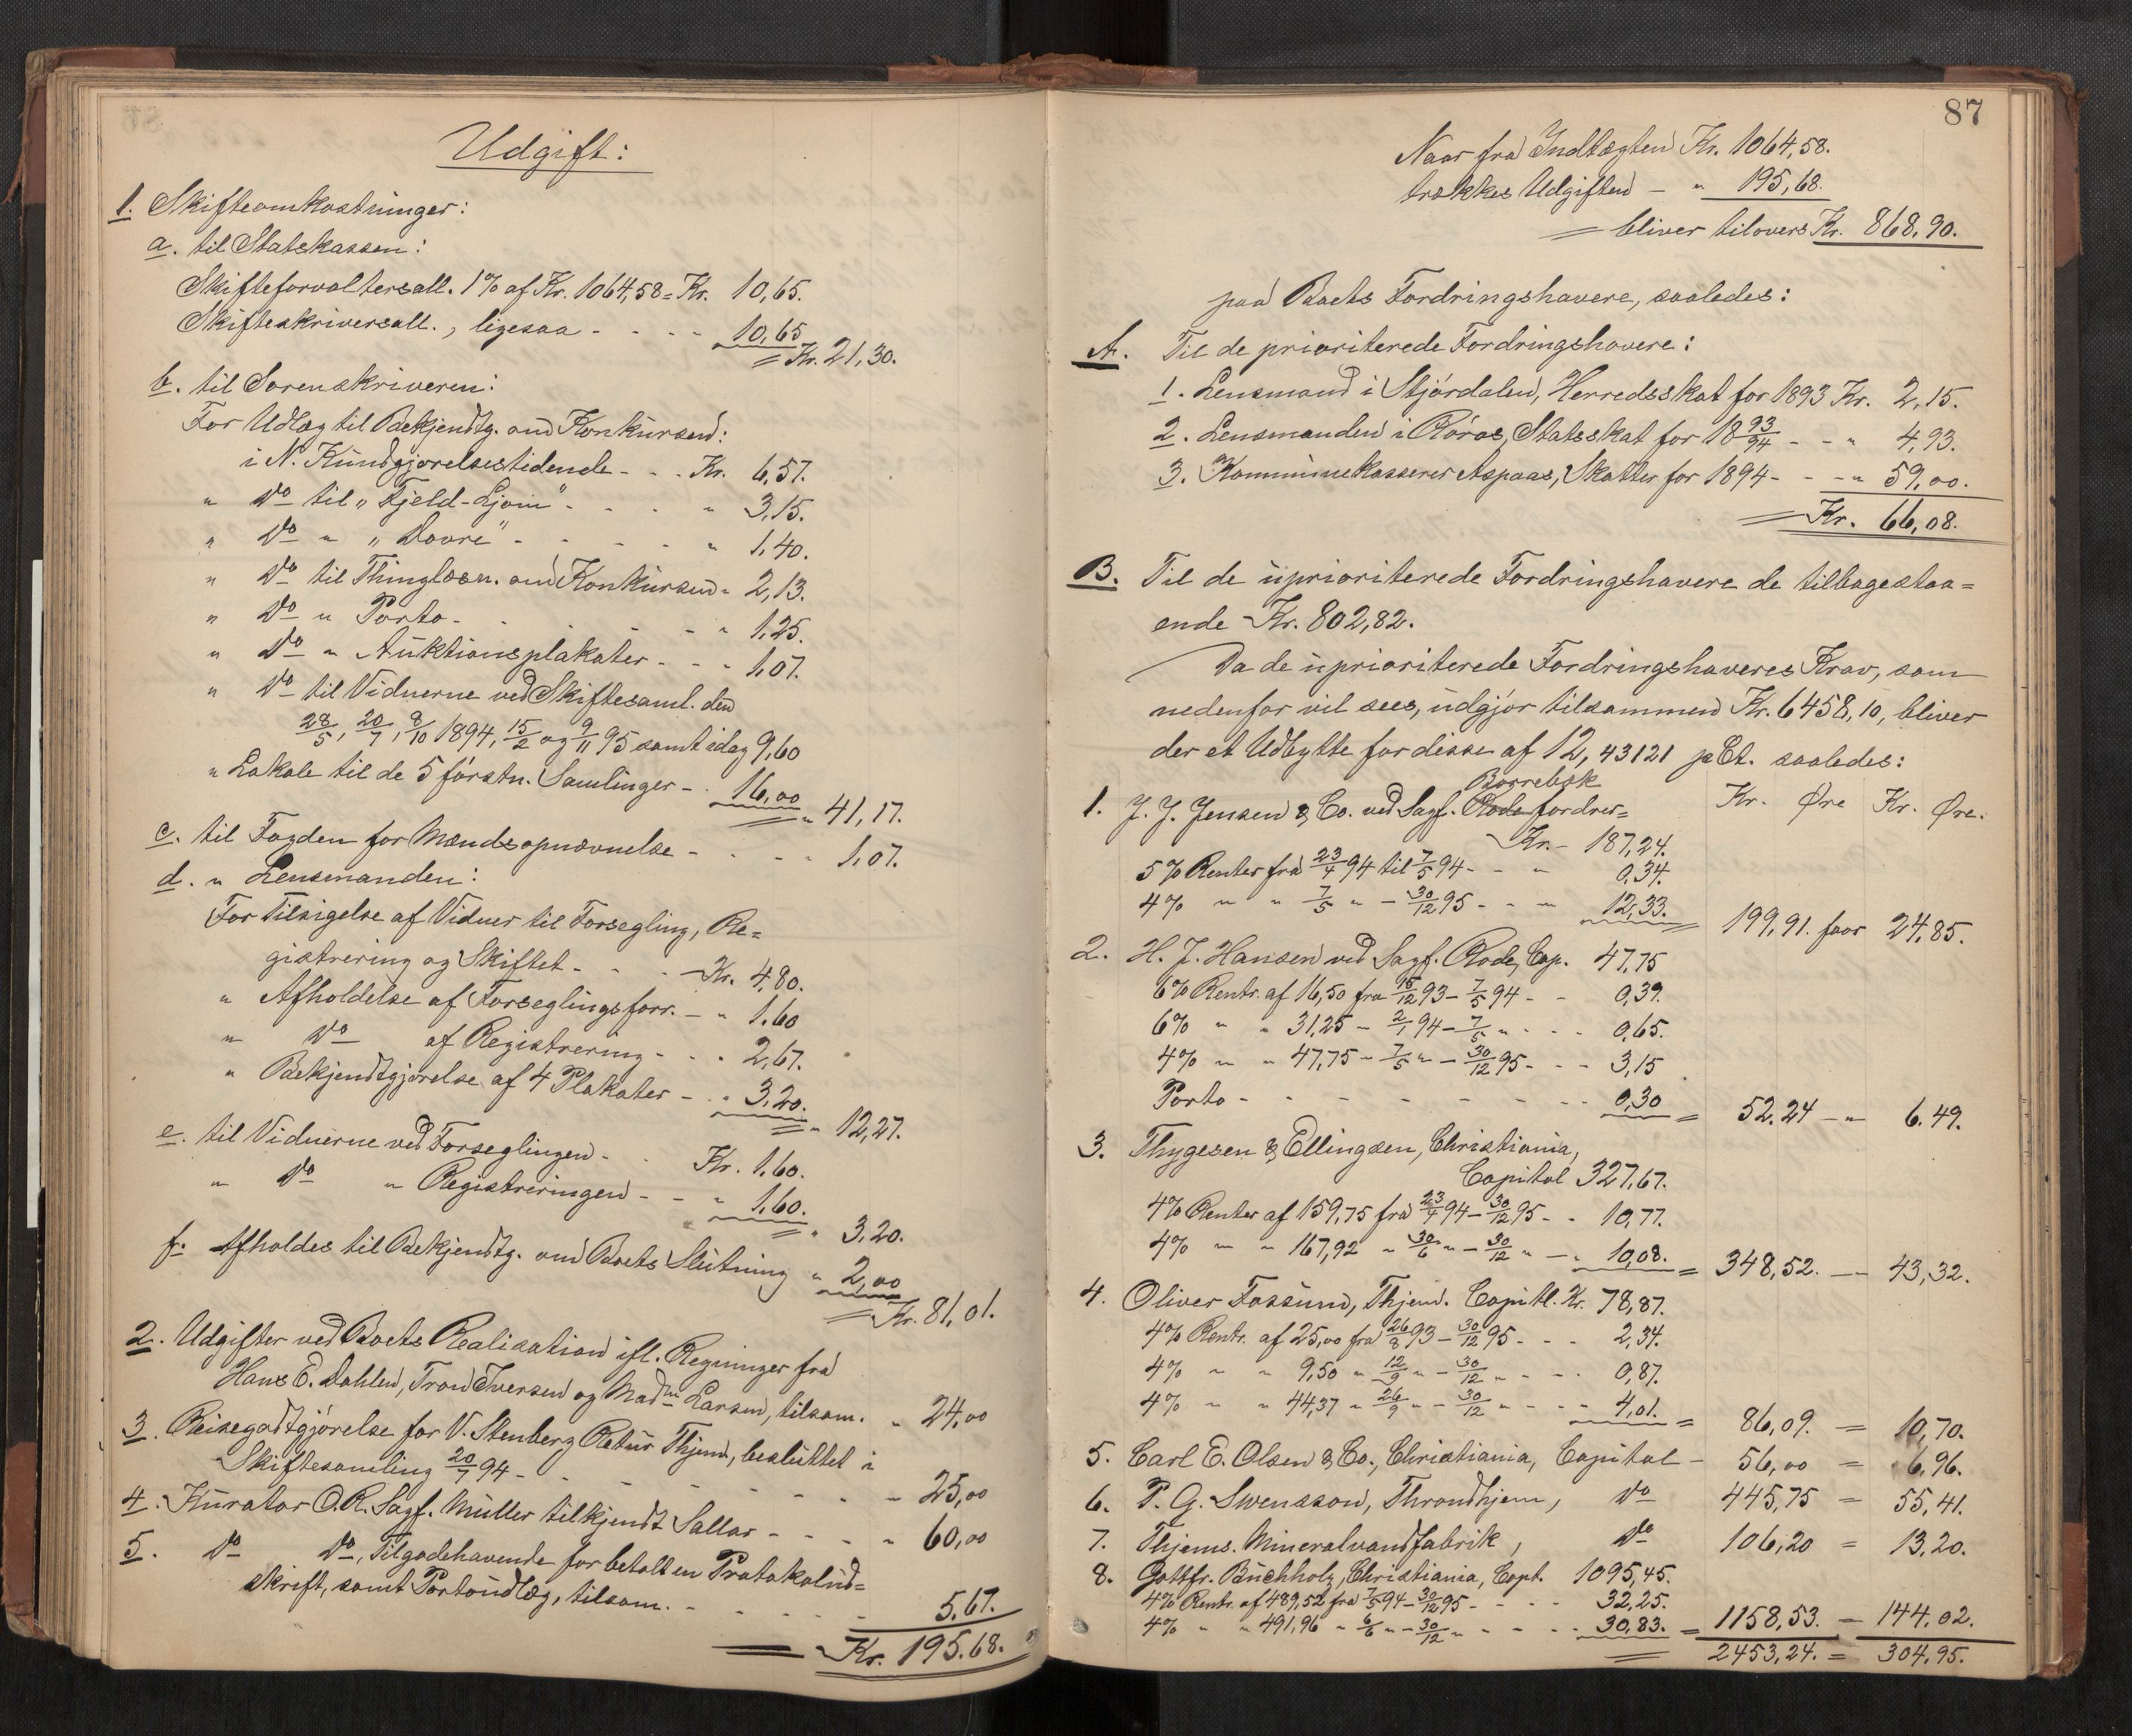 Udgift:
1. Skifteomkostninger:
a. til Statskassen:
Skifteforvaltersall. 1% af Kr. 1064,58 = Kr. 10,65.
Skifteskriversall., ligesaa - - - - 10,65
= Kr. 21,30.
b. til Sorenskriveren:
For Udlæg til Bekjendtg. om Konkursen:
i N. Kundgjørelsestidende - - - Kr. 6,57.
" do til "Fjeld-Ljom" - - - - " 3,15.
" do " "Dovre" - - - - - " 1,40.
" do til Thinglæsn. om Konkursen " 2,13.
" do " Porto - - - - - " 1,25.
" do " Auktionsplakater - - - 1,07.
" do til Vidnerne ved Skiftesaml. den
28/5, 20/7, 8/10 1894, 15/2 og 9/11 95 samt idag 9,60
" Lokale til de 5 førstn. Samlinger - - 16,00
= " 41,17.
c. til Fogden for Mændsopnævnelse - - - - 1,07.
d. " Lensmanden:
For Tilsigelse af Vidner til Forsegling, Re=
gistrering og Skiftet - - - Kr. 4,80.
" Afholdelse af Forseglingsforr. - " 1,60
" do af Registrering - - - 2,67.
" Bekjendtgjørelse af 4 Plakater - - " 3,20.
= " 12,27.
e. til Vidnerne ved Forseglingen - - Kr. 1,60.
" do " Registreringen - - " 1,60.
= " 3,20.
f. Afholdes til Bekjendtg. om Boets Slutning " 2,00
= Kr. 81,01.
2. Udgifter ved Boets Realisation ifl. Regninger fra
Hans E. Dahlen, Tron Iversen og Madm Larsen, tilsam. " 24,00
3. Reisegodtgjørelse for V. Stenberg Retur Thjem, besluttet i
Skiftesamling 20/7 94 - - - - - - - - 25,00
4. Kurator O.R. Sagf. Müller tilkjendt Sallær - - - - " 60,00
5. do do, Tilgodehavende for betalt en Protokolud=
skrift, samt Portoudlæg, tilsam. - - - - - 5,67.
= Kr. 195.68.
87
Naar fra Indtægten Kr. 1064,58.
trækkes Udgiften - " 195,68.
= bliver tilovers Kr. 868,90.
paa Boets Fordringshavere, saaledes:
A. Til de prioriterede Fordringshavere:
1. Lensmand i Stjørdalen, Herredsskat for 1893 Kr. 2,15.
2. Lensmanden i Røros, Statsskat for 18 93/94 - - " 4,93.
3. Kommunekasserer Aspaas, Skatter for 1894 - - - " 59,00.
= Kr. 66,08.
B. Til de uprioriterede Fordringshavere de tilbagestaa=
ende Kr. 802,82.
Da de uprioriterede Fordringshaveres Krav, som
nedenfor vil sees, udgjør tilsammen Kr. 6458,10, bliver
der et Udbytte for disse af 12,43121 pCt. saaledes:
Borrebæk
1. J. J. Jensen & Co. ved Sagf. Rode fordrer= Kr. Øre Kr. Øre.
Kr. - 187,24.
5% Renter fra 23/4 94 til 7/5 94 - - " 0,34.
4% " " 7/5 " - 30/12 95 - - " 12,33. = 199,91. faar 24,85.
2. H. J. Hansen ved Sagf. Rode, Cap. 47,75
6% Rentr. af 16,50 fra 15/12 93 - 7/5 94 - - 0,39.
6% " " 31,25 - 2/1 94 - 7/5 " - - - 0,65.
4% " " 47,75 - 7/5 " - 30/12 95 - - - 3,15
Porto - - - - - - - - - 0,30 = 52,24 - " 6,49.
3. Thygesen & Ellingsen, Christiania,
Capital 327,67.
4% Renter af 159,75 fra 23/4 94 - 30/12 95 - - 10,77.
4% " " 167,92 " 30/6 " - 30/12 " - " 10,08. = 348,52. - " 43,32.
4. Oliver Fossum, Thjem. Capitl. Kr. 78,87.
4% Rentr. af 25,00 fra 26/8 93 - 30/12 95 - - - 2,34.
4% " " 9,50 " 12/9 " - 30/12 " - - - 0,87.
4% " " 44,37 " 26/9 " - 30/12 " - - - 4,01. = 86,09. = 10,70.
5. Carl E. Olsen & Co., Christiania, Capital - 56,00 = 6,96.
6. P. G. Svensson, Throndhjem, do 445,75 = 55,41.
7. Thjems. Mineralvandfabrik, do 106,20 = 13,20.
8. Gottfr. Buchholz, Christiania, Capt. 1095,45.
4% Rentr. af 489,52 fra 7/5 94 - 30/12 95 - - - - 32,25.
4% " " 491,96 " 6/6 " - 30/12 " - - - - 30,83. = 1158,53. - 144,02.
= 2453,24. = 304,95.